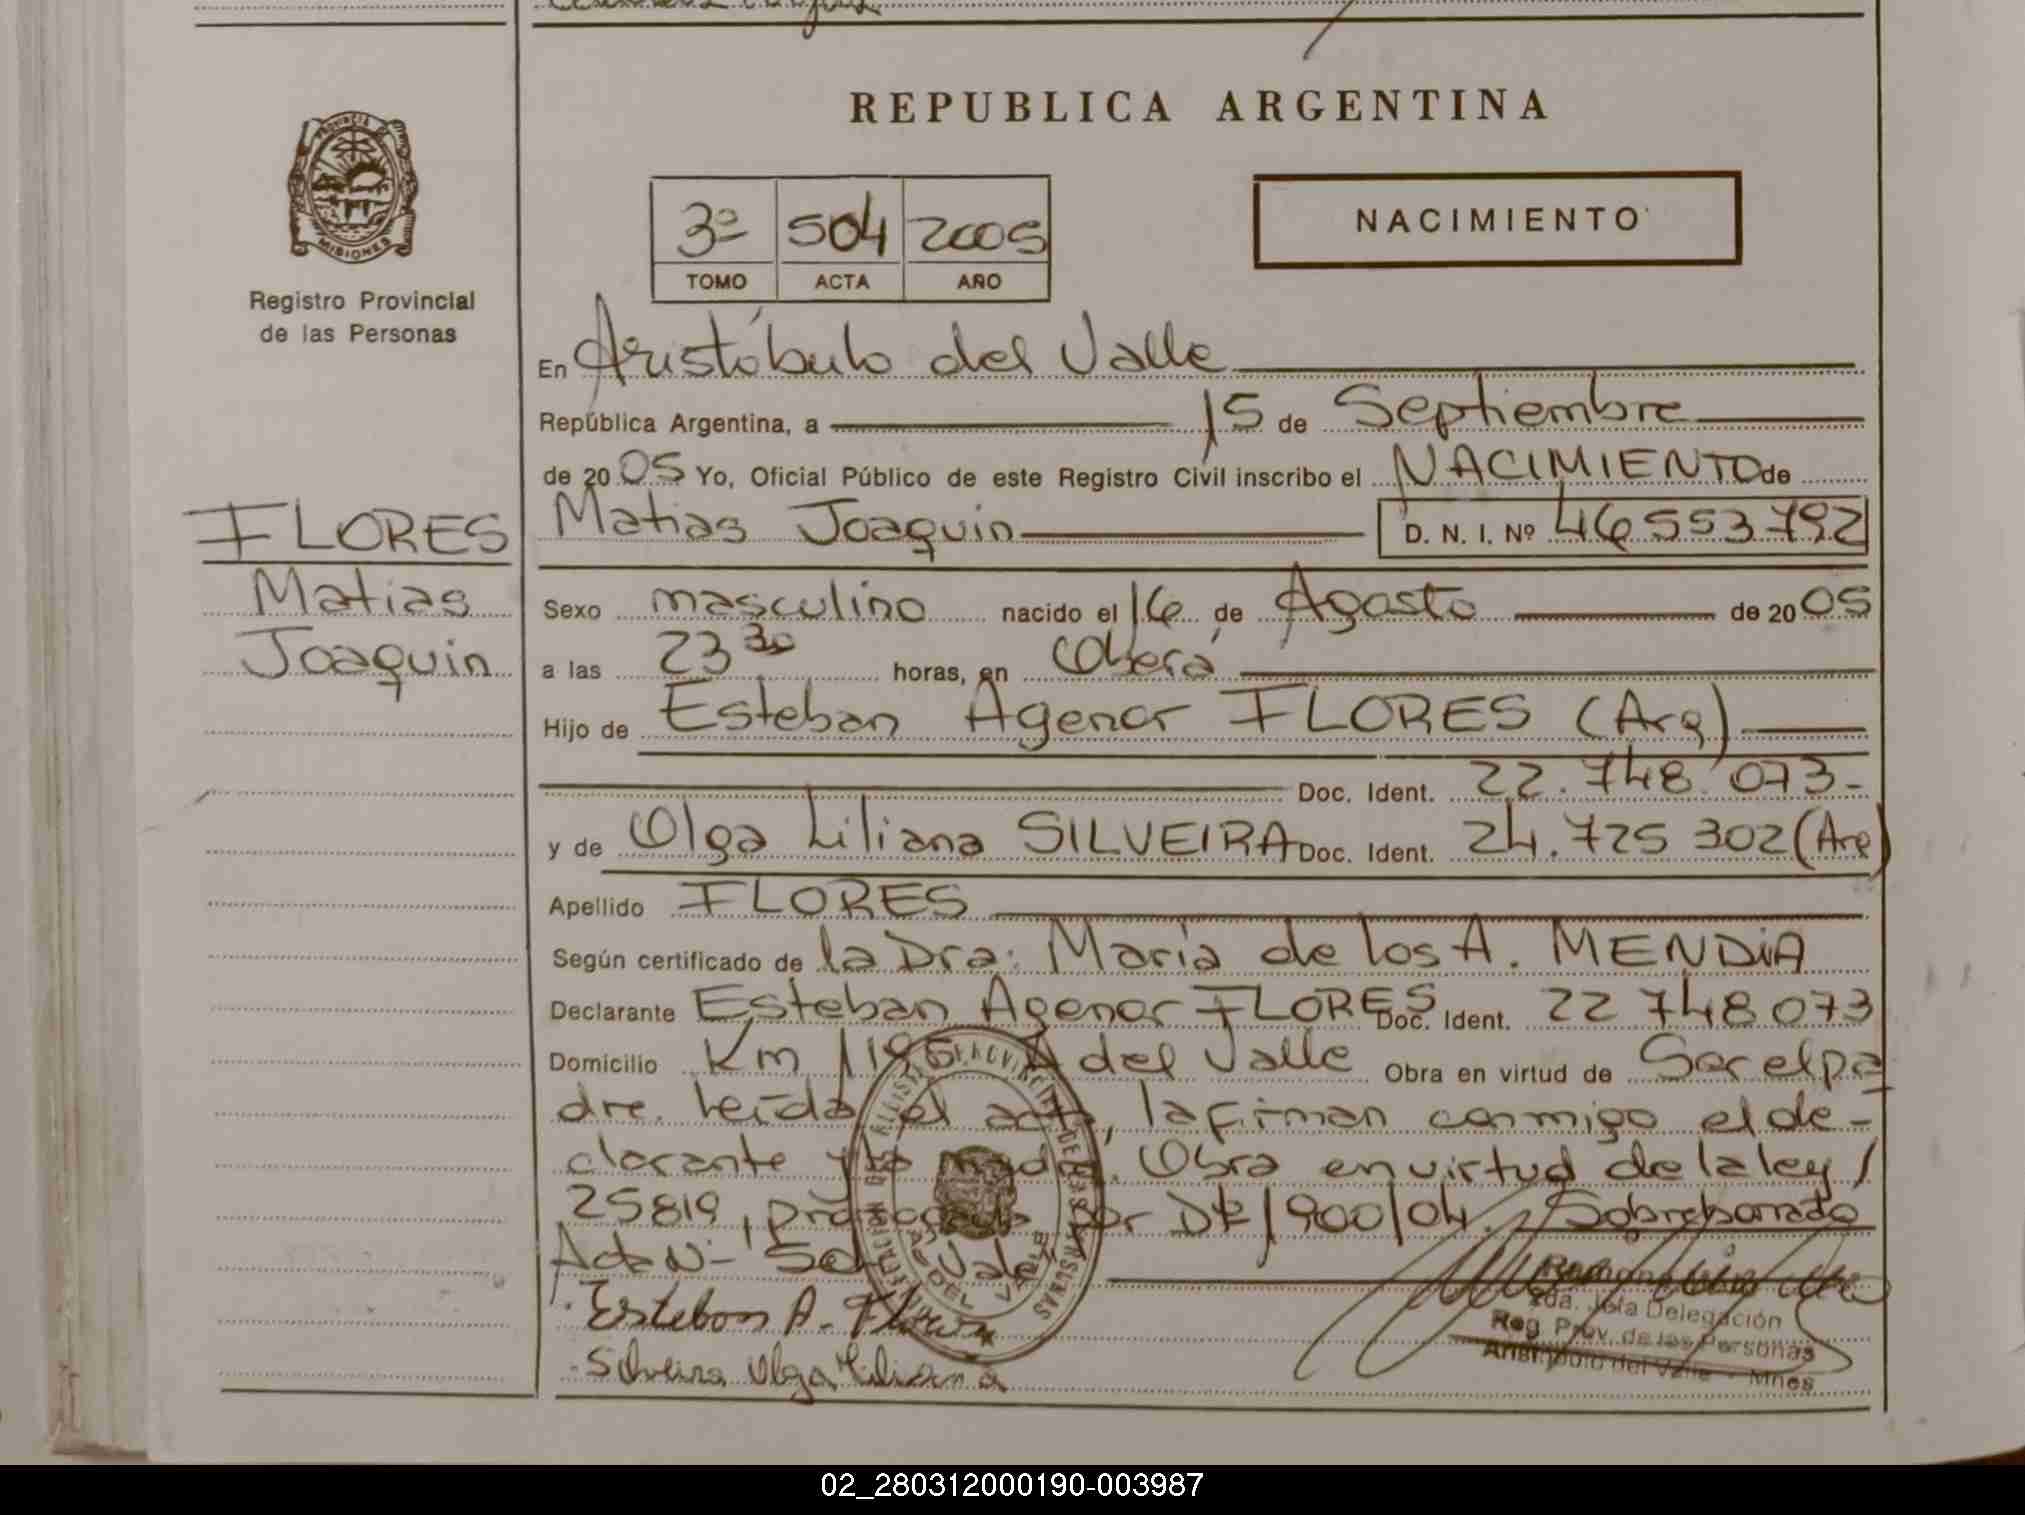 REPUBLICA ARGENTINA
PROVINCIA DE MISIONES
Registro Provincial
de las Personas
3º 504 2005
TOMO ACTA AÑO
NACIMIENTO
En Aristóbulo del Valle
República Argentina, a 15 de Septiembre
de 2005 Yo, Oficial Público de este Registro Civil inscribo el NACIMIENTO de
FLORES
Matias
Joaquin
Matias Joaquin D. N. I. Nº 46553792
Sexo masculino nacido el 16 de Agosto de 2005
a las 23 30 horas, en Oberá
Hijo de Esteban Agenor FLORES (Arg)
Doc. Ident. 22.748.073-
y de Olga Liliana SILVEIRA Doc. Ident. 24.725 302 (Arg)
Apellido FLORES
Según certificado de la Dra: María de los A. MENDIA
Declarante Esteban Agenor FLORES Doc. Ident. 22 748 073
Domicilio Km 1196 A del Valle Obra en virtud de Ser el pa
dre. Leída el acta, la firman conmigo el de-
clarante y la madre. Obra en virtud de la ley /
25819, prorrogada por /900/04. Sobreborrado
Acta Nº 504 Vale
Esteban A. Flores
Silveira Olga Liliana
2da. Jefa Delegación
Reg. Prov. de las Personas
Aristóbulo del Valle - Mnes
02_280312000190-003987